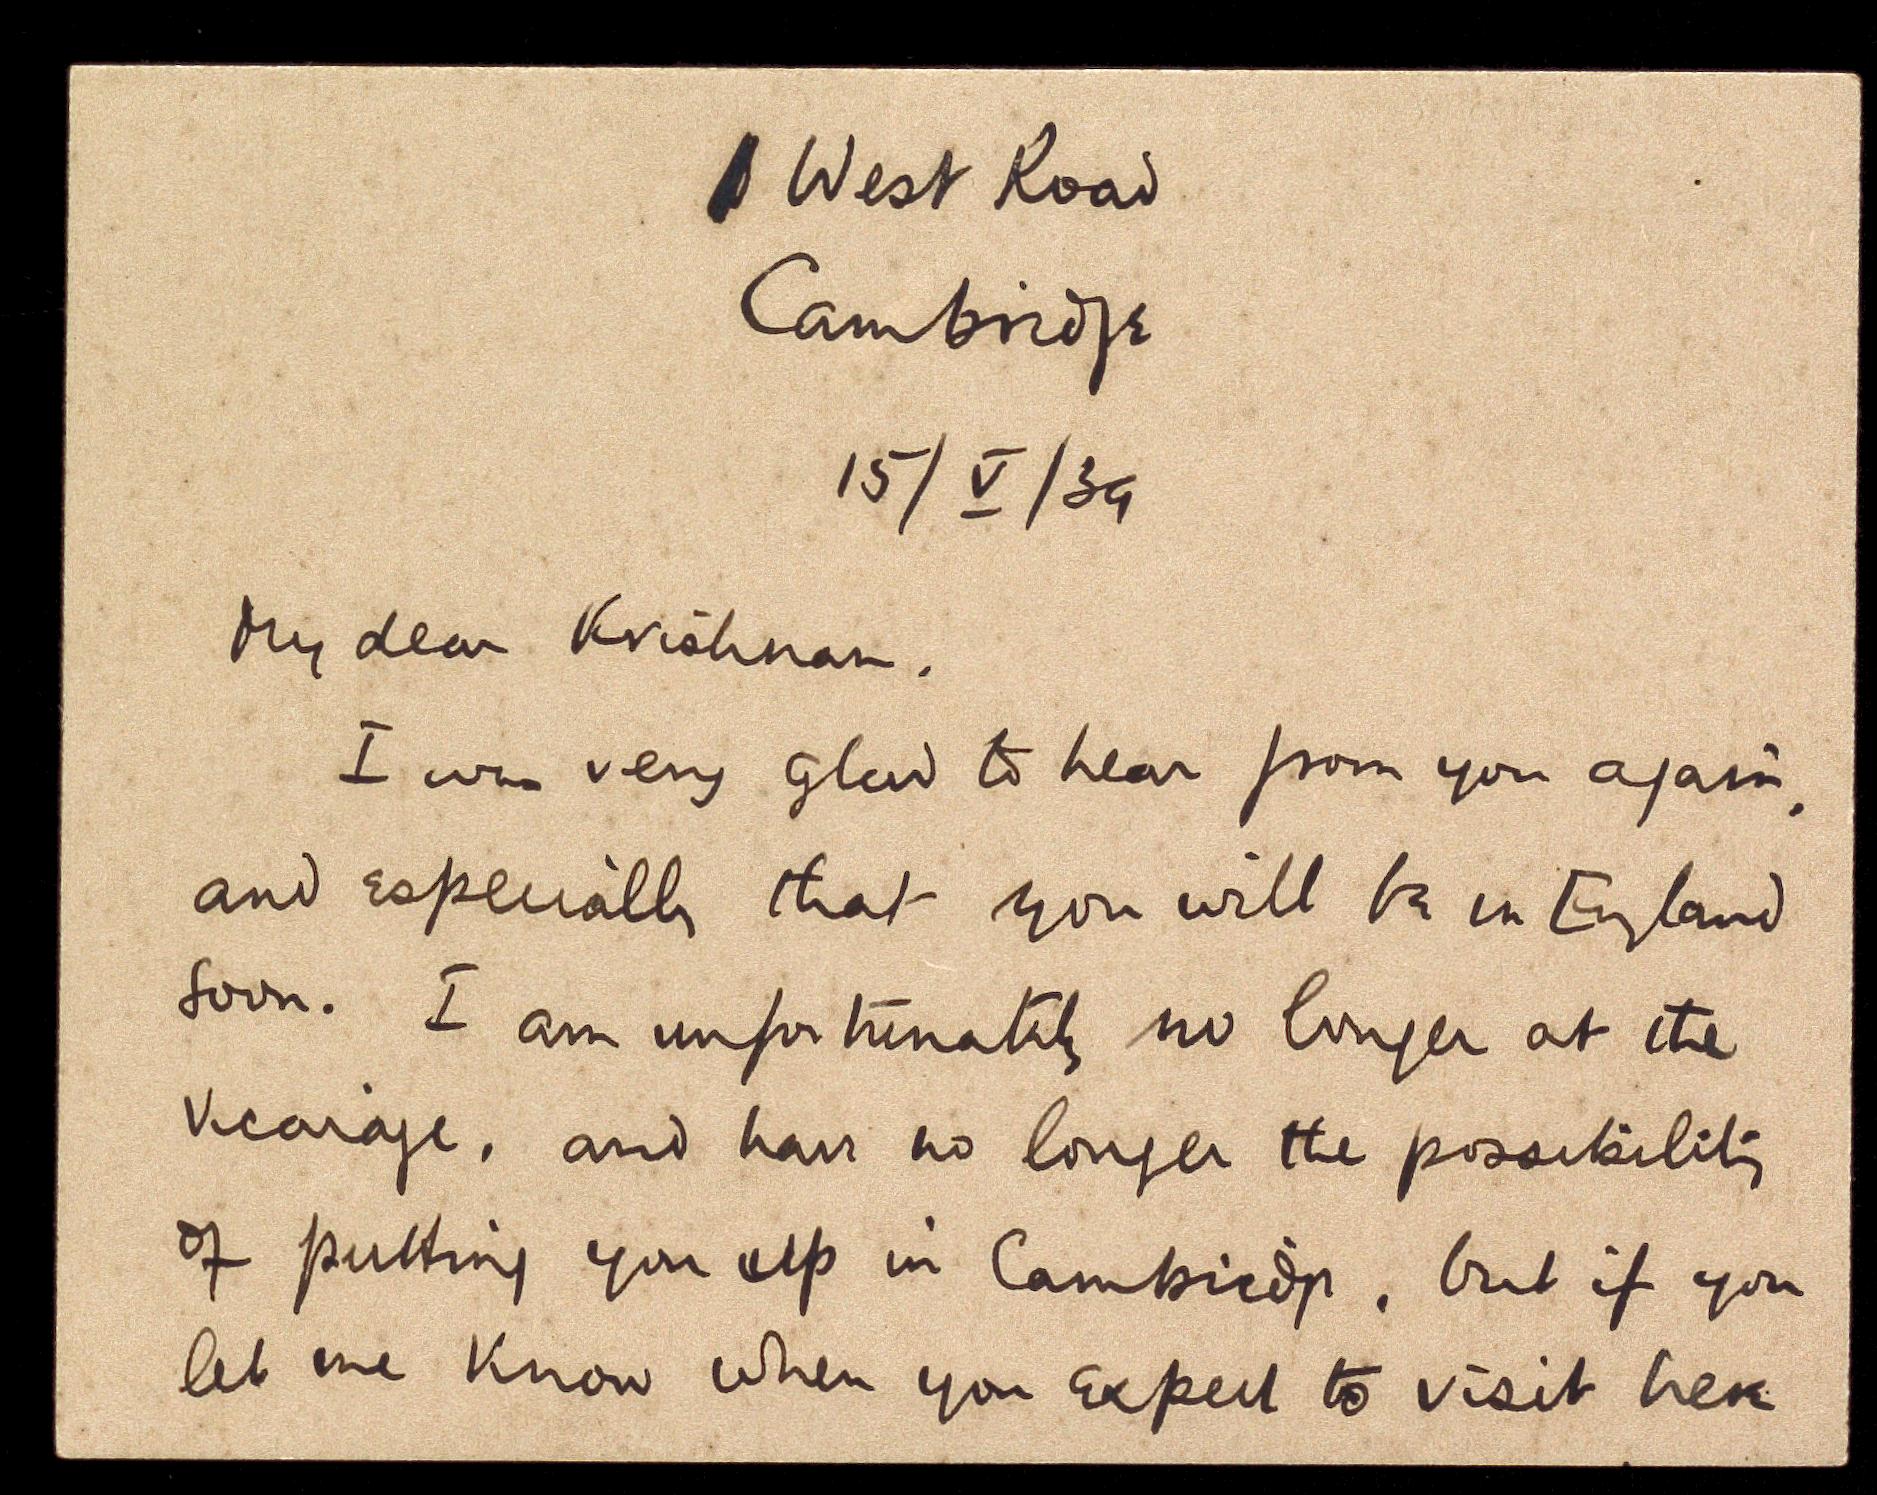 1 West Road
Cambridge
15/V/39
My dear Krishnan.
I was very glad to hear from you again,
and especially that you will be in England
soon. I am unfortunately no longer at the
Vicarage, and have no longer the possibility
of putting you up in Cambridge, but if you
let me know when you expect to visit here